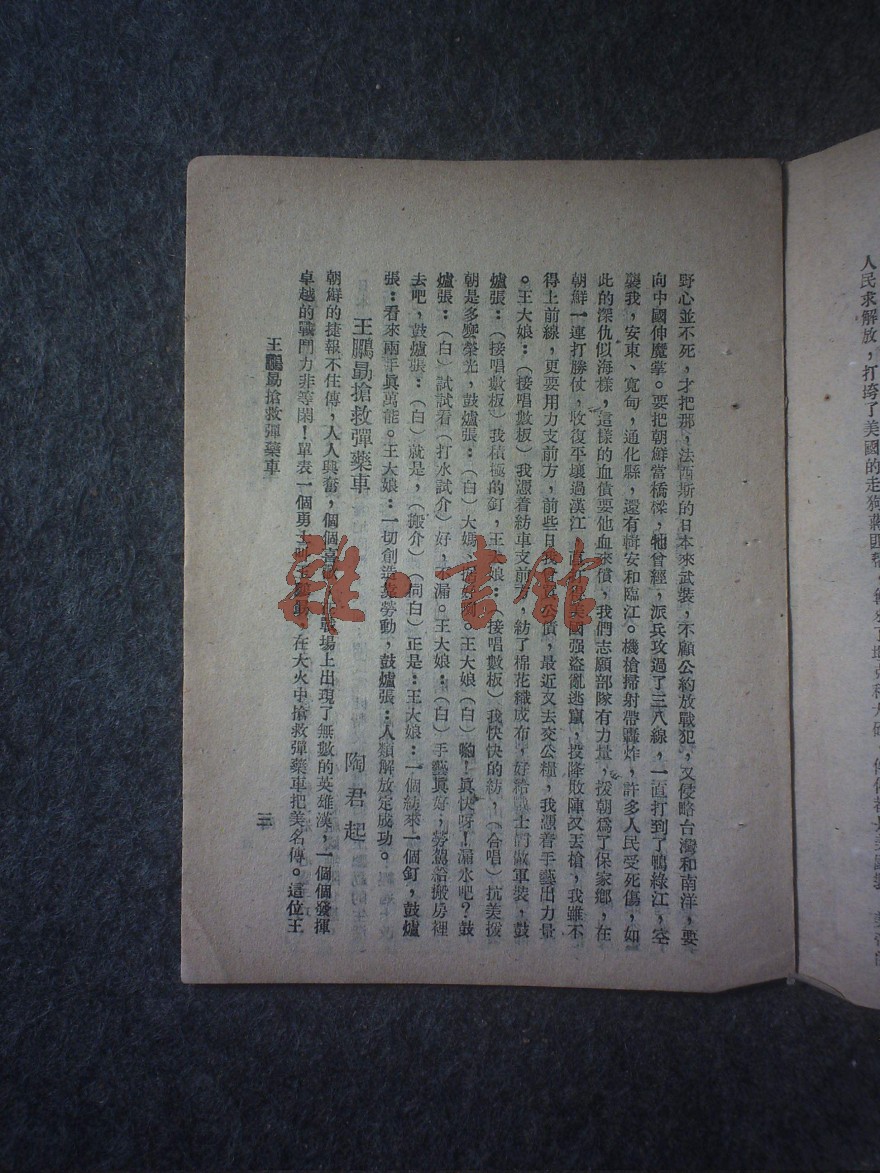 人民求解放，打垮了美國的走狗蔣匪幫，
野心並不死，才把那，法西斯的日本來武裝，不顧公約放戰犯，又侵略台灣和南洋，要
向中國伸魔掌。要把朝鮮當橋樑，牠曾經，派兵攻過了三八線，一直打到了鴨綠江，空
襲我，安東、寬甸，通化縣，還有輯安和臨江。機槍掃射帶轟炸，許多人民受死傷，如
此的深仇似海樣，這樣的血債要他血來償，我們志願部隊有力量，援朝爲了保家鄉，在
朝鮮一連打勝仗，收復平壤過漢江，美國强盜亂逃竄，投降敗陣又丟槍，我雖不
得上前線，更要用力支前方，前些日我公債，最近又去交公糧，我憑着手藝出力量
。王大娘：（接唱數板）我憑着紡車支前，紡了棉花織成布，好給戰士們做軍裝，鼓
爐張：（接唱數板）我積極的釘，王大娘：（接唱數板）我快快的紡，（合唱）抗美援
朝是多麼榮光，鼓爐張：（白）大媽、鍋好列。王大娘（白）喲！眞快呀！漏水吧？鼓
爐張：（白）試試看（打水試介）好，不漏。王大娘：（白）手藝眞好；勞駕給搬房裡
去吧，鼓爐張：（白）就是，（搬介）（同白）正是：王大娘：一個紡來一個釘，鼓爐
張：看來兩手眞萬能。王大娘：一切創造靠勞動，鼓爐張：人類解放定成功。
王鵬勗搶救彈藥車
陶君起
朝鮮的捷報不住傳，人人興奮，個個喜歡，戰場上出現了無數的英雄漢，一個個發揮
卓越的戰鬥力非等閑！單表一個勇士叫王鵬勗，在大火中搶救彈藥車把美名傳。這位王
王鵬勗搶救彈藥車
三
雜·書館